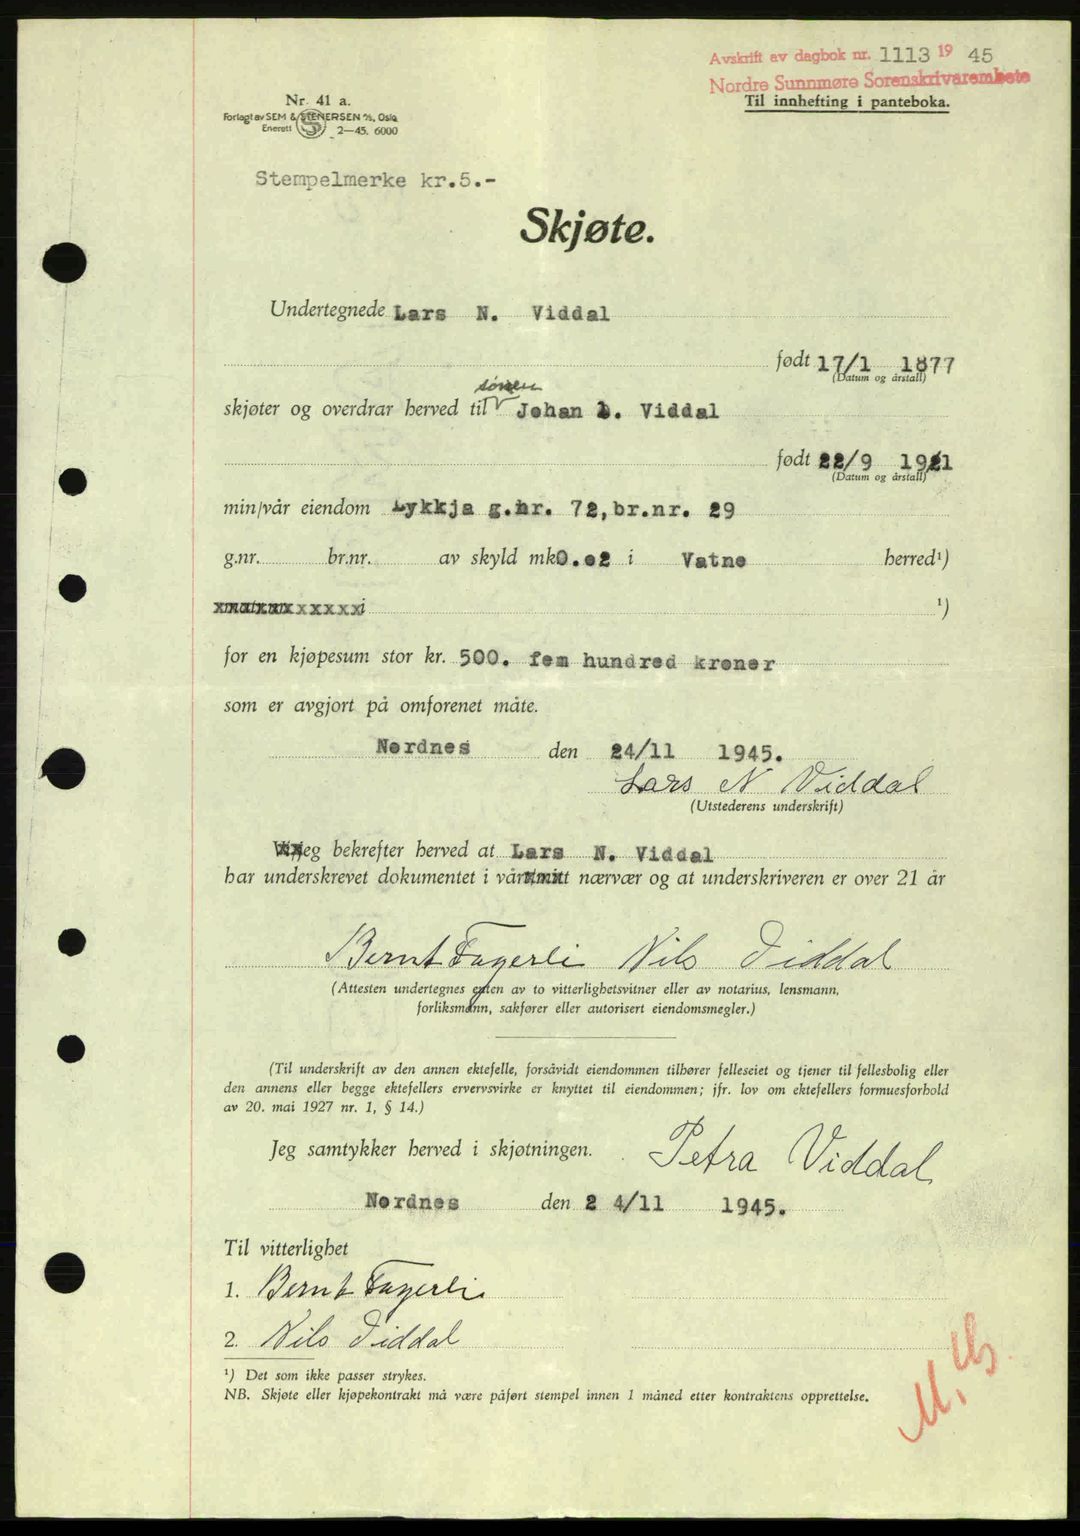 Avskrift av dagbok nr. 1113 19 45
Nordre Sunnmøre Sorenskrivarembete
Til innhefting i panteboka.
Nr. 41 a.
Forlagt av SEM & STENERSEN A/S, Oslo
Enerett 2—45. 6000
Stempelmerke kr.5.-
Skjøte.
Undertegnede Lars N. Viddal
født 17/1 1877
(Datum og årstall)
sønen
skjøter og overdrar herved til Johan L. Viddal
født 22/9 1921
(Datum og årstall)
min/vår eiendom Lykkja g.nr. 72, br.nr. 29
g.nr. br.nr. av skyld mk 0.02 i Vatne herred¹)
xxxxxxxxxxxx i ¹)
for en kjøpesum stor kr. 500. fem hundred kroner
som er avgjort på omforenet måte.
Nordnes den 24/11 1945.
Lars N Viddal
(Utstederens underskrift)
jeg bekrefter herved at Lars N. Viddal
har underskrevet dokumentet i vårt nærvær og at underskriveren er over 21 år
Bernt Fagerli Nils Viddal
(Attesten undertegnes enten av to vitterlighetsvitner eller av notarius, lensmann,
forliksmann, sakfører eller autorisert eiendomsmegler.)
(Til underskrift av den annen ektefelle, forsåvidt eiendommen tilhører felleseiet og tjener til fellesbolig eller
den annens eller begge ektefellers ervervsvirke er knyttet til eiendommen; jfr. lov om ektefellers formuesforhold
av 20. mai 1927 nr. 1, § 14.)
Jeg samtykker herved i skjøtningen. Petra Viddal
Nordnes den 2 4/11 1945.
Til vitterlighet
1. Bernt Fagerli
2. Nils Viddal
¹) Det som ikke passer strykes.
NB. Skjøte eller kjøpekontrakt må være påført stempel innen 1 måned etter kontraktens opprettelse.